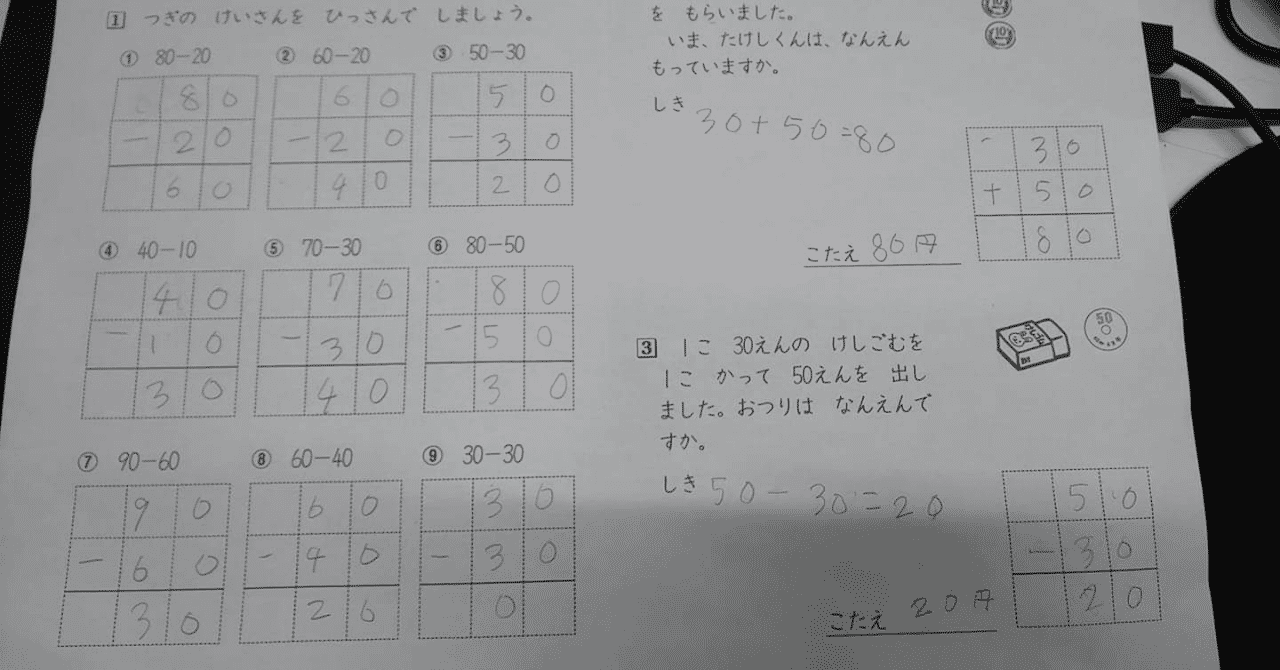 1 つぎの けいさんを ひっさんで しましょう。
① 80-20
8 0
- 2 0
6 0
② 60-20
6 0
- 2 0
4 0
③ 50-30
5 0
- 3 0
2 0
④ 40-10
4 0
- 1 0
3 0
⑤ 70-30
7 0
- 3 0
4 0
⑥ 80-50
8 0
- 5 0
3 0
⑦ 90-60
9 0
- 6 0
3 0
⑧ 60-40
6 0
- 4 0
2 0
⑨ 30-30
3 0
- 3 0
0
を もらいました。
いま、たけしくんは、なんえん
もっていますか。
10
10
しき 30+50=80
3 0
+ 5 0
8 0
こたえ 80円
3 1こ 30えんの けしごむを
1こ かって 50えんを 出し
ました。おつりは なんえんで
すか。
けしゴム
50
しき 50-30=20
5 0
- 3 0
2 0
こたえ 20円